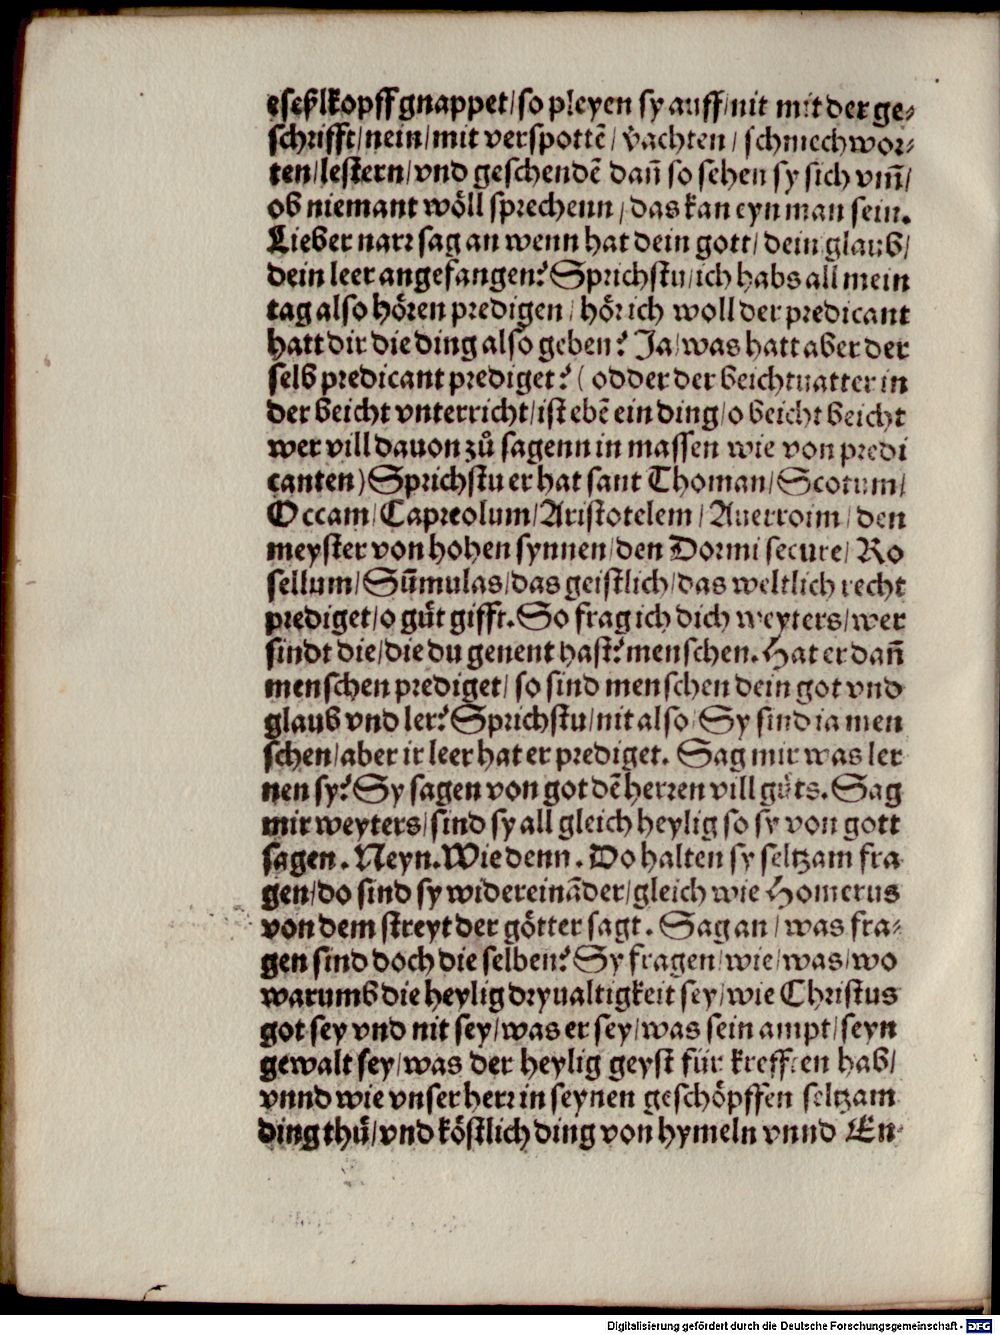 eseßlkopff gnappet/ so pleyen sy auff/ nit mit der ge⸗
schrifft/ nein/ mit verspottē/ v̈achten/ schmechwor⸗
ten/ lestern/ vnd geschendē dañ so sehen sy sich vm̃/
ob niemant wöll sprechenn/ das kan eyn man sein.
Lieber narr sag an wenn hat dein gott/ dein glaub/
dein leer angefangen? Sprichstu/ ich habs all mein
tag also hören predigen/ hör ich woll der predicant
hatt dir die ding also geben? Ja/ was hatt aber der
selb predicant prediget? (odder der beichtuatter in
der beicht vnterricht/ ist ebē ein ding/ o beicht beicht
wer vill dauon zů sagenn in massen wie von predi
canten) Sprichstu er hat sant Thoman/ Scotum/
Occam/ Capreolum/ Aristotelem/ Auerroim/ den
meyster von hohen synnen/ den Dormi secure/ Ro
sellum/ Sum̄ulas/ das geistlich/ das weltlich recht
prediget/ o gůt gifft. So frag ich dich weyters/ wer
sindt die/ die du genent hast? menschen. Hat er dañ
menschen prediget/ so sind menschen dein got vnd
glaub vnd ler? Sprichstu/ nit also/ Sy sind ia men
schen/ aber ir leer hat er prediget. Sag mir was ler
nen sy? Sy sagen von got dē herren vill gůts. Sag
mir weyters/ sind sy all gleich heylig so sy von gott
sagen. Neyn. Wie denn. Do halten sy seltzam fra
gen/ do sind sy widereināder/ gleich wie Homerus
von dem streyt der götter sagt. Sag an/ was fra⸗
gen sind doch die selben? Sy fragen/ wie/ was/ wo
warumb die heylig dryualtigkeit sey/ wie Christus
got sey vnd nit sey/ was er sey/ was sein ampt/ seyn
gewalt sey/ was der heylig geyst für krefften hab/
vnnd wie vnser herr in seynen geschöpffen seltzam
ding thů/ vnd köstlich ding von hymeln vnnd En⸗
Digitalisierung gefördert durch die Deutsche Forschungsgemeinschaft - DFG